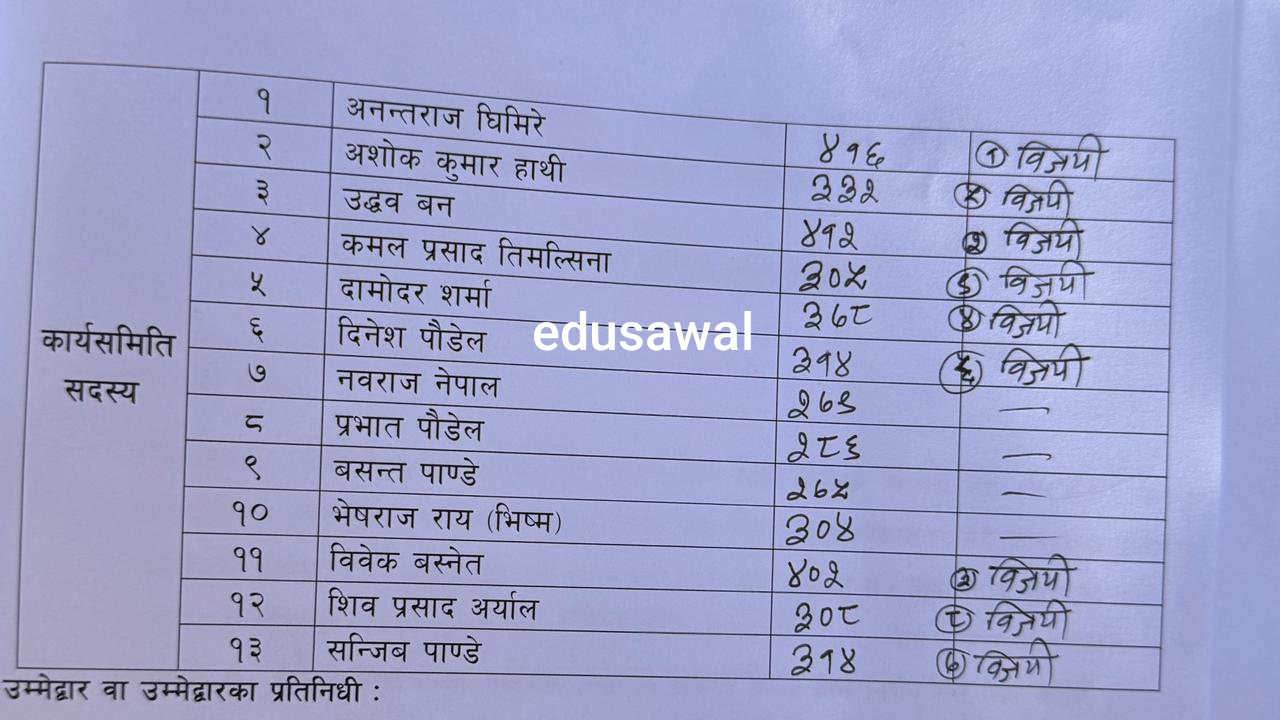 १ अनन्तराज घिमिरे ४१६ १ विजयी
२ अशोक कुमार हाथी ३३२ ५ विजयी
३ उद्धव बन ४१२ २ विजयी
४ कमल प्रसाद तिमल्सिना ३०५ ९ विजयी
५ दामोदर शर्मा ३६८ ४ विजयी
६ दिनेश पौडेल ३१४ ६ विजयी
edusawal
कार्यसमिति
सदस्य
७ नवराज नेपाल २६९ —
८ प्रभात पौडेल २८६ —
९ बसन्त पाण्डे २६५ —
१० भेषराज राय (भिष्म) ३०४ —
११ विवेक बस्नेत ४०२ ३ विजयी
१२ शिव प्रसाद अर्याल ३०८ ८ विजयी
१३ सन्जिब पाण्डे ३१४ ७ विजयी
उम्मेद्वार वा उम्मेद्वारका प्रतिनिधी :